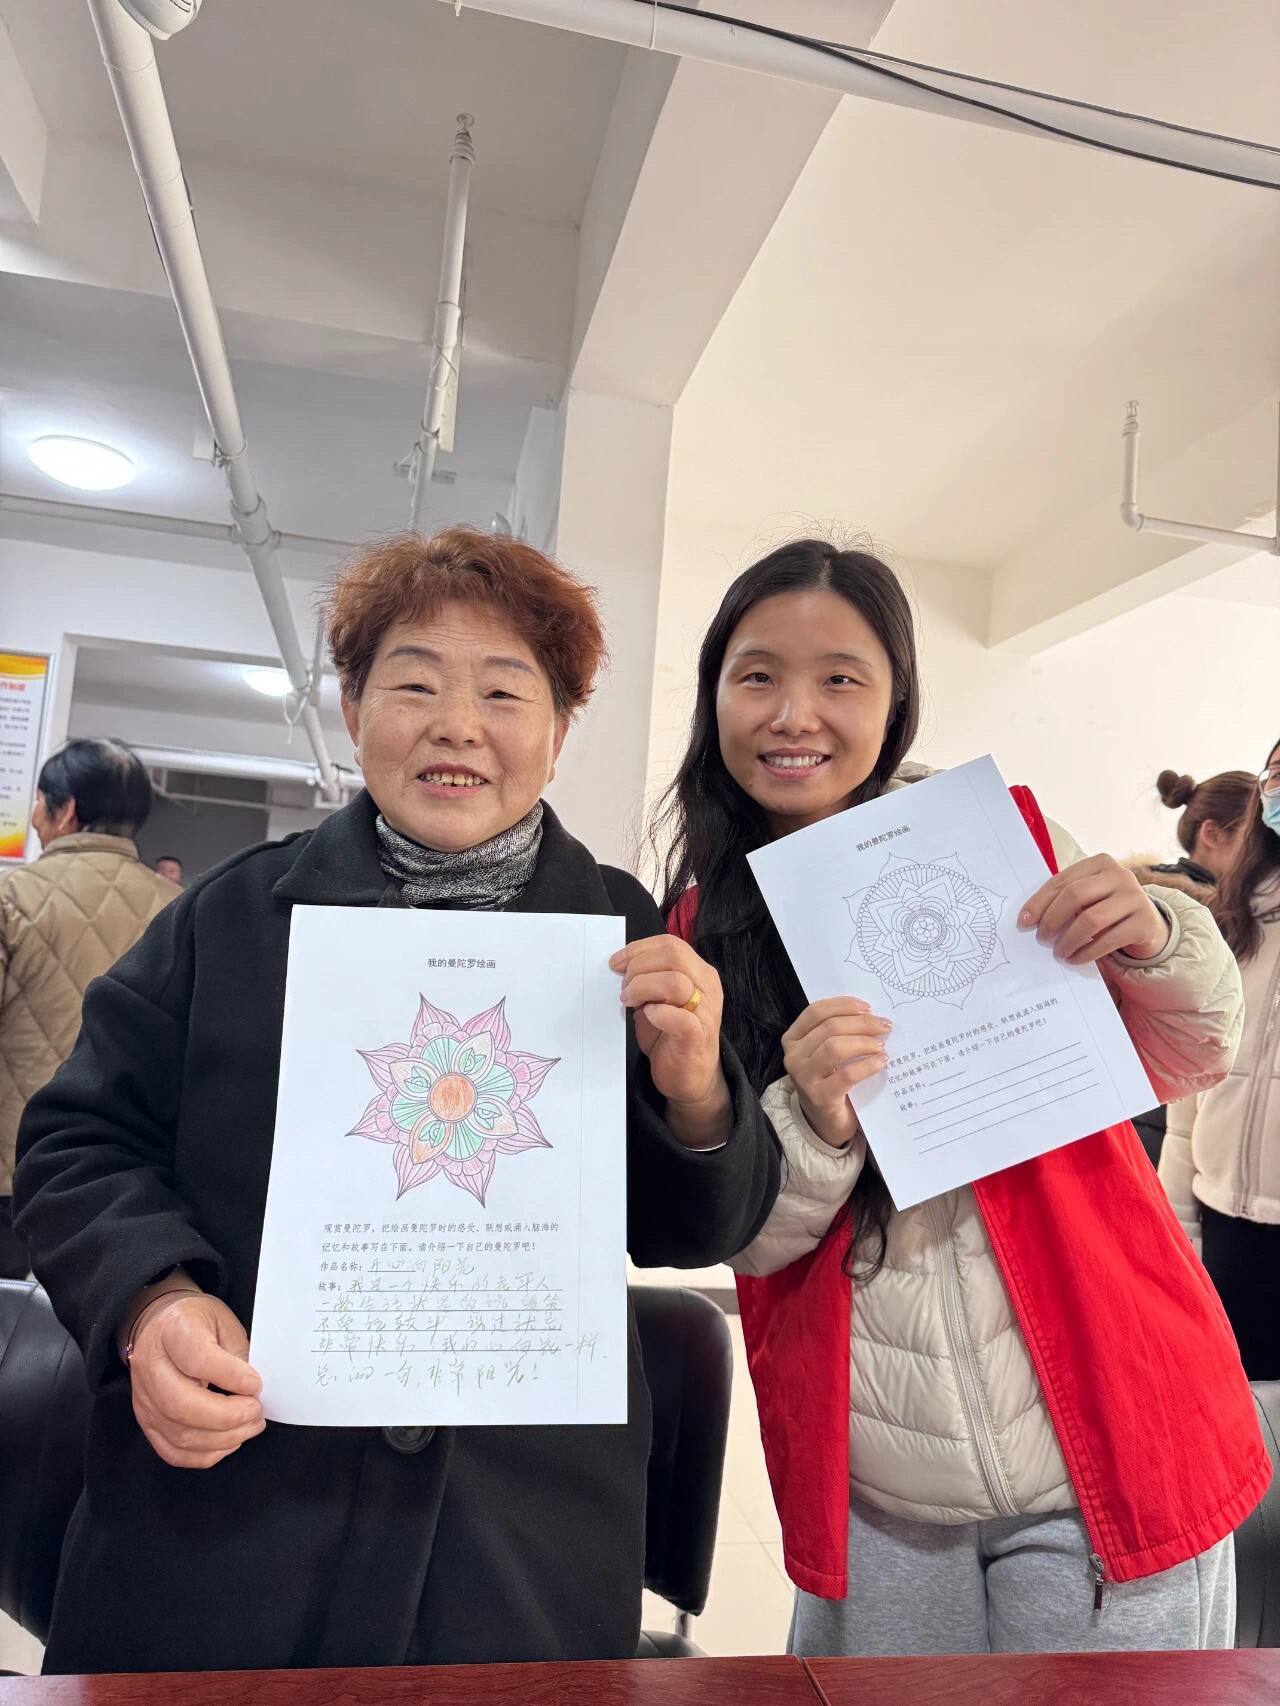 作制度
我的曼陀罗绘画
观赏曼陀罗，把绘画曼陀罗时的感受、联想或涌入脑海的
记忆和故事写在下面，请介绍一下自己的曼陀罗吧！
作品名称：开心向阳花
故事：我是一个快乐的老年人
一般生活状况的说
不要 较斗 说过就忘
非常快乐 我的心向花一样
总 一句，非常阳光！
我的曼陀罗绘画
观赏曼陀罗，把绘画曼陀罗时的感受、联想或涌入脑海的
记忆和故事写在下面，请介绍一下自己的曼陀罗吧！
作品名称：
故事：